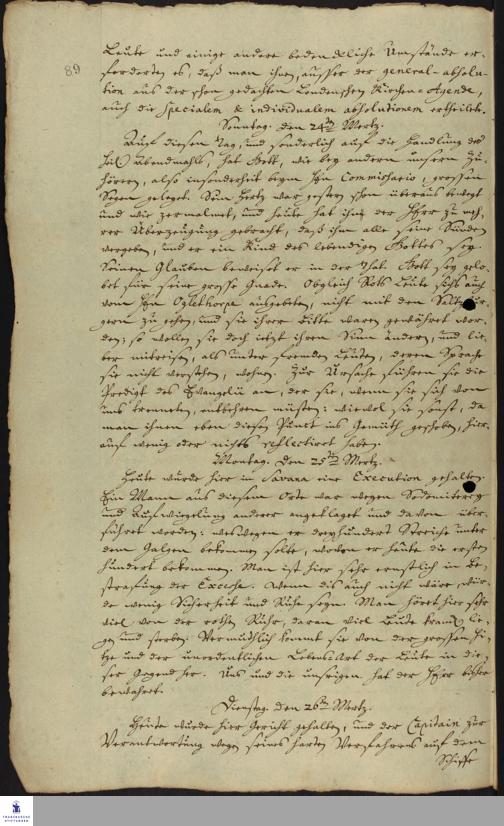 89
Leute und einige andere bedenckliche Umstände er-
forderten es, daß man ihnen, ausser der general-absolu-
tion aus der schon gedachten Londenschen Kirchen-Agende,
auch die specialem & individualem absolutionem ertheilete.
Sonntag. den 24ten Mertz.
Auf diesen Tag, und sonderlich auf die Handlung des
Heil. Abendmahls, hat Gott, wie bey andern unsern Zu-
hörern, also insonderheit beym Hn Commissario, grossen
Segen geleget. Sein Hertz war gestern schon überaus bewegt
und wie zermalmet, und heute hat ihn der HErr zu meh-
rer Überzeugung gebracht, daß ihm alle seine Sünden
vergeben, und er ein Kind des lebendigen Gottes sey.
Seinen Glauben beweiset er in der That. Gott sey gelo-
bet für seine grosse Gnade. Obgleich Leute sichs auch
vom Hn Oglethorpe ausgebeten, nicht mit den Saltzbur-
gern zu ziehen, und sie ihrer Bitte waren gewähret wor-
den; so wollen sie doch jetzt ihren Sinn ändern, und lie-
ber mitreisen, als unter fremden Leuten, deren Sprache
sie nicht verstehen, wohnen. Zur Ursache führen sie die
Predigt des Evangelii an, der sie, wenn sie sich von
uns trenneten, entbehren müsten: wiewol sie sonst, da
man ihnen eben diesen Punct ins Gemüth geschoben, hier-
auf wenig oder nichts reflectiret haben.
Montag. den 25ten Mertz.
Heute wurde hier in Savana eine Execution gehalten.
Ein Mann aus diesem Orte war wegen Sodomiterey
und Aufwiegelung anderer angeklaget und davon über-
führet worden: weswegen er dreyhundert Streiche unter
dem Galgen bekommen solte, wovon er heute die ersten
hundert bekommen. Man ist hier sehr ernstlich in Be-
strafung der Excesse. Wenn dis auch nicht wäre, wür-
de wenig Sicherheit und Ruhe seyn. Man höret hier sehr
viel von der rothen Ruhr, daran viel Leute kranck lie-
gen und sterben. Vermuthlich kommt sie von der grossen Hi-
tze und der unordentlichen Lebens-Art der Leute in die-
ser Gegend her. Uns und die unsrigen hat der HErr bisher
bewahret.
Dienstag. den 26ten Mertz.
Heute wurde hier Gericht gehalten, und der Capitain zur
Verantwortung wegen seines harten Verfahrens auf dem
Schiffe